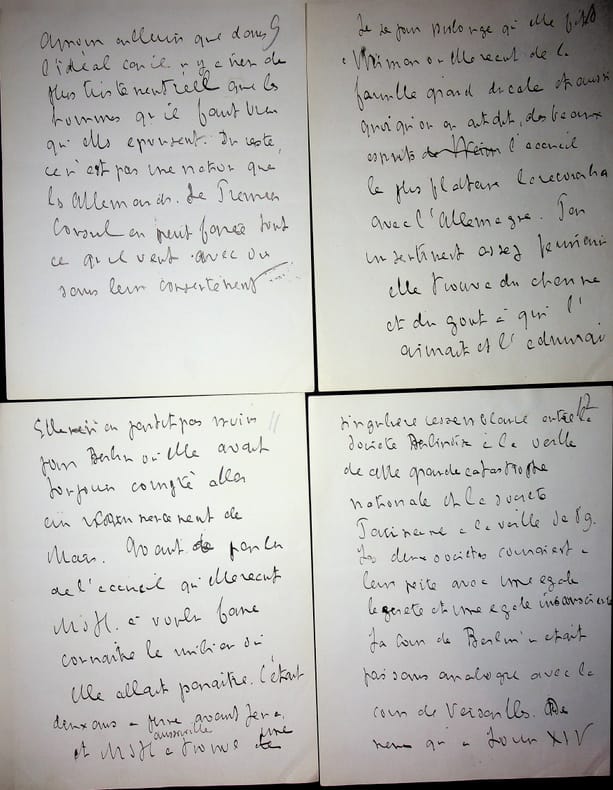 9
l'idéal car il n'y a rien de
plus sentencieux que les
hommes qu'il faut
qu'elle épousent. Du reste,
ce n'est pas une nation que
les Allemands. Le Premier
Consul en peut faire tout
ce qu'il veut avec ou
sans leur consentement
10
Le séjour prolongé qu'elle fit à
Weimar où elle reçut de la
famille grand ducale et aussi
quoiqu'on en ait dit, des beaux
esprits l'accueil
le plus flatteur la réconcilia
avec l'Allemagne. Par
un sentiment assez féminin
elle trouva du charme
et du goût à qui l'
aimait et l'admirait
11
Elle n'en partit pas moins
pour Berlin où elle avait
toujours compté aller
au commencement de
Mars. Avant de parler
de l'accueil qu'elle reçut
M. d. St. a voulu faire
connaître le milieu où
elle allait paraître. C'était
deux ans à peine avant Iéna,
et M. d. St. a trouvé une
aussi
12
singulière ressemblance entre la
société Berlinoise à la veille
de cette grande catastrophe
nationale et la société
Parisienne à la veille de 89.
Les deux sociétés couraient à
leur perte avec une égale
légèreté et une égale inconscience
La cour de Berlin n'était
pas sans analogie avec la
cour de Versailles. De
même qu'à Louis XIV